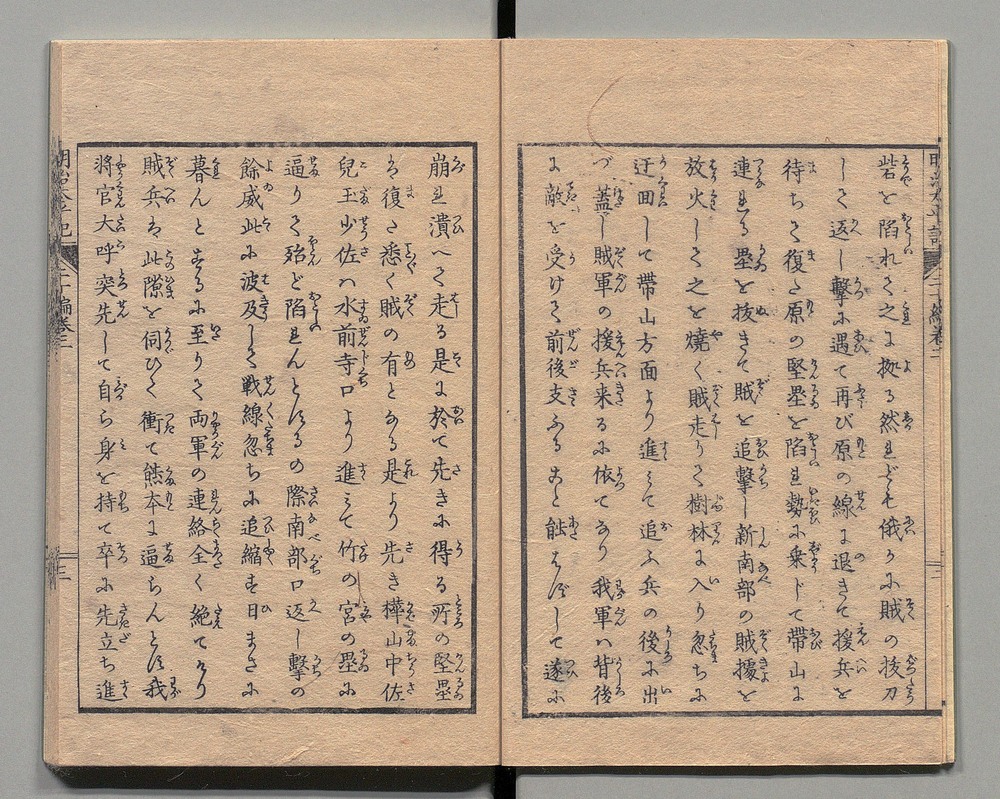 砦を陥れて之に拠る然れども俄かに賊の抜刀
して返し撃に遇て再び原の線に退きて援兵を
待ちて復た原の堅塁を陥れ勢に乗じて帯山に
連れる塁を抜きて賊を追撃し新南部の賊據を
放火して之を燒く賊走りて樹林に入り忽ちに
迂回して帯山方面より進みて追ふ兵の後に出
づ蓋し賊軍の援兵来るに依てなり我軍ハ背後
に敵を受けて前後支ふること能はずして遂に
崩れ潰へて走る是に於て先きに得る所の堅塁
も復た悉く賊の有となる是より先き樺山中佐
兒玉少佐ハ水前寺口より進みて竹の宮の塁に
逼りて殆ど陥れんとするの際南部口返し擊の
餘威此に波及して戦線忽ちに追縮す日まさに
暮んとするに至りて両軍の連絡全く絶てなり
賊兵は此隙を伺ひて衝て熊本に逼らんとす我
将官大呼突先して自ら身を持て卒に先立ち進
明治太平記
二十編巻二
二